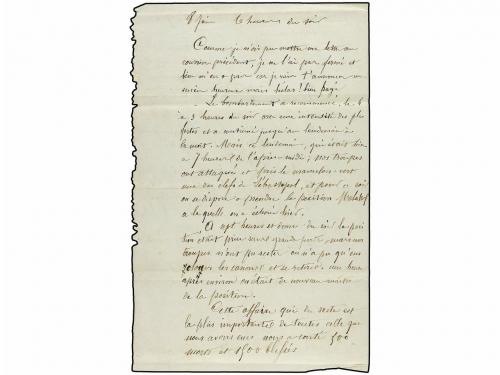 8 Juin 6 heures du soir
Comme je n'ai pu mettre ma lettre au
courrier précédent, je ne l'ai pas fermé et
bien m'en a pris car je viens t'annoncer un
succès heureux mais hélas! bien payé
Le bombardement a recommencé, le 6
à 3 heures du soir avec une intensité des plus
fortes et a continué jusqu'au lendemain à
la nuit. Mais ce lendemain, qui était hier
a 7 heures de l'après-midi, nos troupes
ont attaqué et pris le mamelon vert
une des clefs de Sébastopol, et pour ce soir
on se dispose a prendre la position Malakof
a laquelle on a échoué hier.
A sept heures et demie du soir la posi
tion était prise sans grande perte, mais nos
troupes n'ont pu rester on n'a pu qu'en
clouer les canons et se retirer une heure
après environ on était de nouveau maitre
de la position.
Cette affaire qui du reste est
la plus importante de toutes celles que
nous avons eues nous a couté 500
morts et 1500 blessés